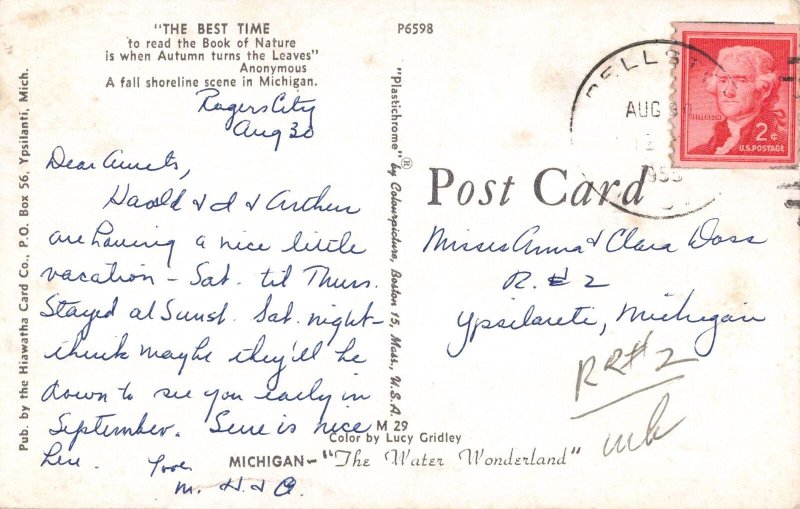 "THE BEST TIME
to read the Book of Nature
is when Autumn turns the Leaves"
Anonymous
A fall shoreline scene in Michigan.
Rogers City
Aug 30
Dear Aunts,
Harold & I & Arthur
are having a nice little
vacation - Sat. til Thurs.
Stayed at Sunst. Sat. night -
think maybe they'll be
down to see you early in
September. Sure is nice
here. Love
M. H. & A.
Pub. by the Hiawatha Card Co., P.O. Box 56, Ypsilanti, Mich.
"Plastichrome"® by Colourpicture, Boston 15, Mass., U.S.A.
P6598
AUG 30
JEFFERSON
2¢
U.S. POSTAGE
Post Card
Misses Anna & Clara Doss
R. #2
Ypsilanti, Michigan
RR#2
M 29
Color by Lucy Gridley
MICHIGAN—"The Water Wonderland"